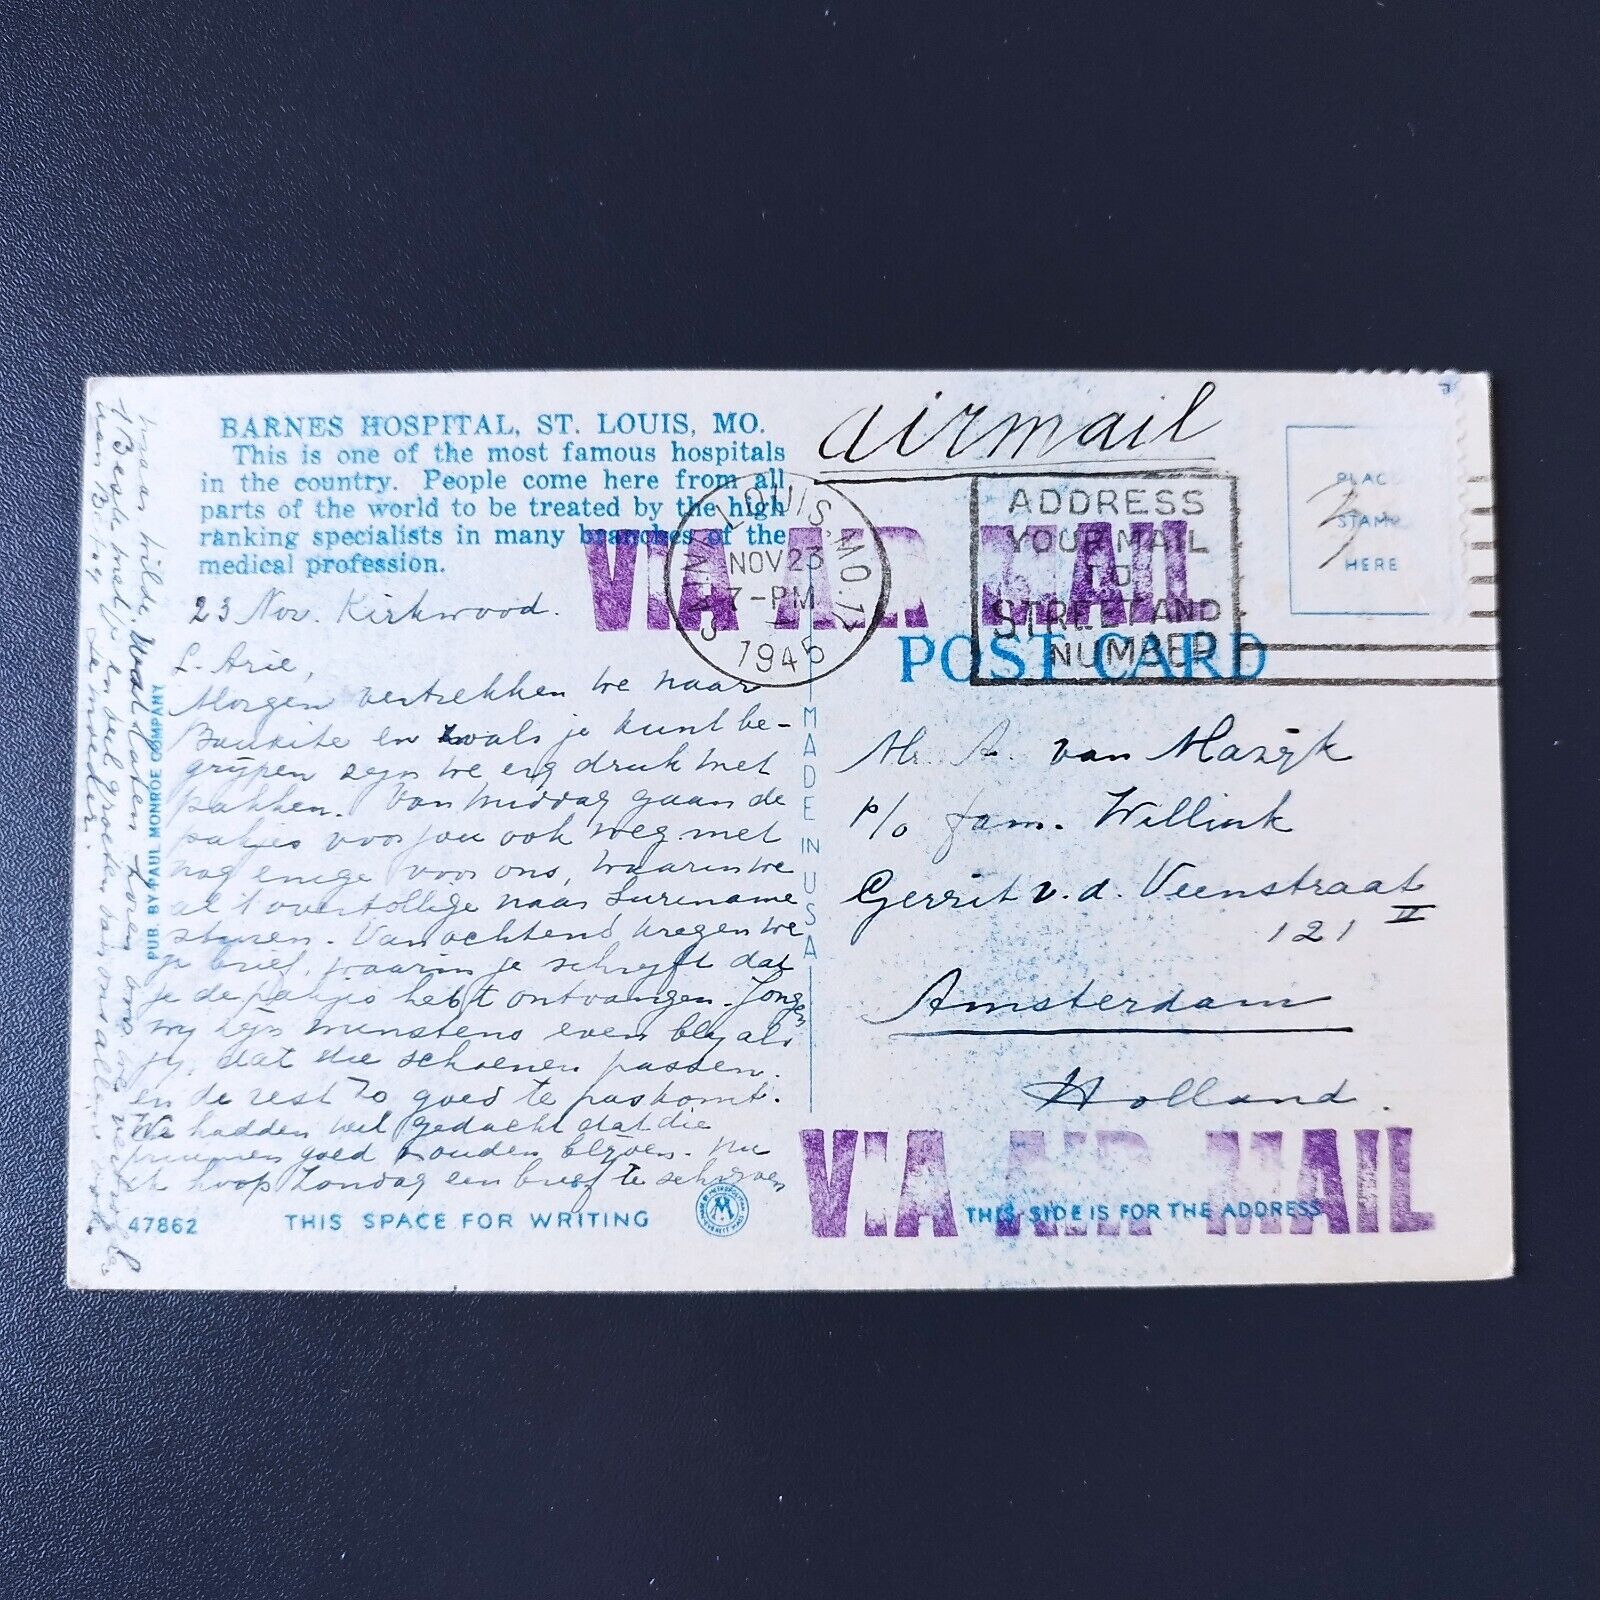 BARNES HOSPITAL, ST. LOUIS, MO.
This is one of the most famous hospitals
in the country. People come here from all
parts of the world to be treated by the high
ranking specialists in many branches of the
medical profession.
airmail
ST. LOUIS, MO. 13
NOV 23
7-PM
1945
ADDRESS
YOUR MAIL
TO
STREET AND
NUMBER
PLACE
STAMP
HERE
VIA AIR MAIL
POST CARD
23 Nov. Kirkwood.
L. Arie,
Morgen vertrekken we naar
en zoals je kunt be-
grijpen zijn we erg druk met
pakken. Van middag gaan de
pakjes voor jou ook weg met
nog enige voor ons, waarin we
al 't overtollige naar Suriname
sturen. Vanochtend kregen we
je brief, waarin je schrijft dat
je de pakjes hebt ontvangen. Jongen
wy zijn minstens even blij als
jy, dat die schoenen passen.
en de rest zo goed te pas komt.
We hadden wel gedacht dat die
goed zouden blijven. Nu
ik hoop Zondag een brief te schrijven
laten horen
Beste met veel groeten van ons allen ook
van
Je moeder.
PUB. BY PAUL MONROE COMPANY
MADE IN USA
Mr. A. van Mazijk
p/o fam. Willink
Gerrit v. d. Veenstraat
121 II
Amsterdam
Holland.
VIA AIR MAIL
47862
THIS SPACE FOR WRITING
THIS SIDE IS FOR THE ADDRESS